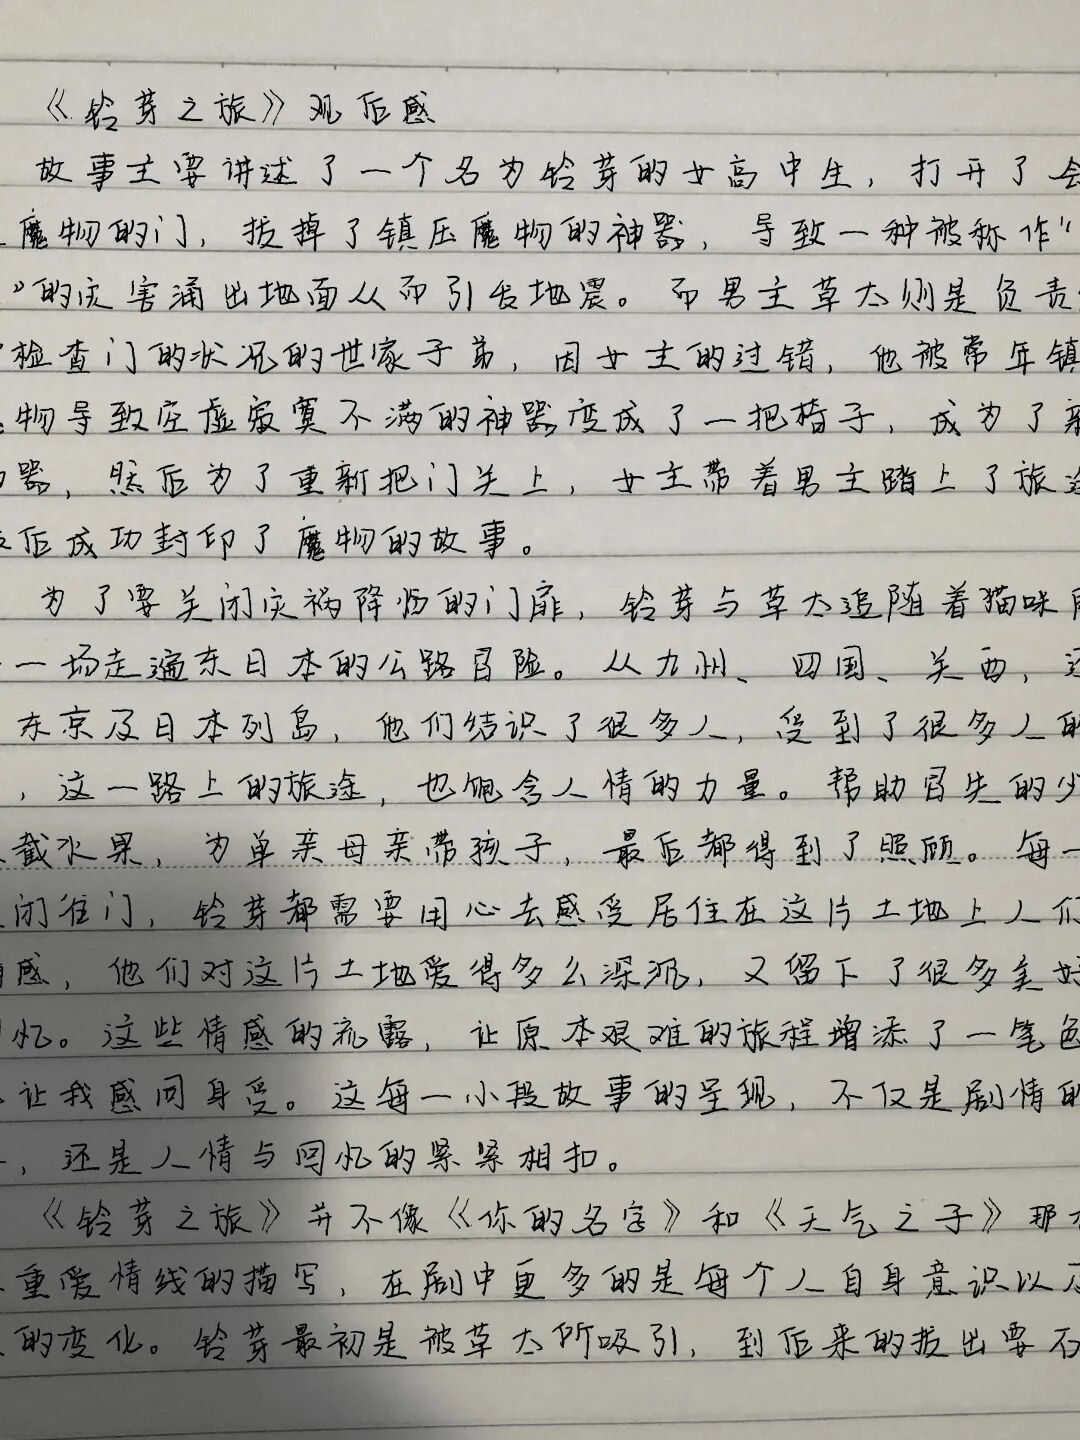 《铃芽之旅》观后感
故事主要讲述了一个名为铃芽的女高中生，打开了会
魔物的门，拔掉了镇压魔物的神器，导致一种被称作“
”的灾害涌出地面从而引发地震。而男主草太则是负责
检查门的状况的世家子弟，因女主的过错，他被常年镇
物导致空虚寂寞不满的神器变成了一把椅子，成为了新
器，然后为了重新把门关上，女主带着男主踏上了旅途
后成功封印了魔物的故事。
为了要关闭灾祸降临的门扉，铃芽与草太追随着猫咪
一场走遍东日本的公路冒险。从九州、四国、关西，
东京及日本列岛，他们结识了很多人，受到了很多人的
，这一路上的旅途，也饱含人情的力量。帮助冒失的少
截水果，为单亲母亲带孩子，最后都得到了照顾。每一
闭往门，铃芽都需要用心去感受居住在这片土地上人们
感，他们对这片土地爱得多么深沉，又留下了很多美好
忆。这些情感的流露，让原本艰难的旅程增添了一笔色
让我感同身受。这每一小段故事的呈现，不仅是剧情的
，还是人情与回忆的紧紧相扣。
《铃芽之旅》并不像《你的名字》和《天气之子》那
重爱情线的描写，在剧中更多的是每个人自身意识以及
的变化。铃芽最初是被草太所吸引，到后来的拔出要石